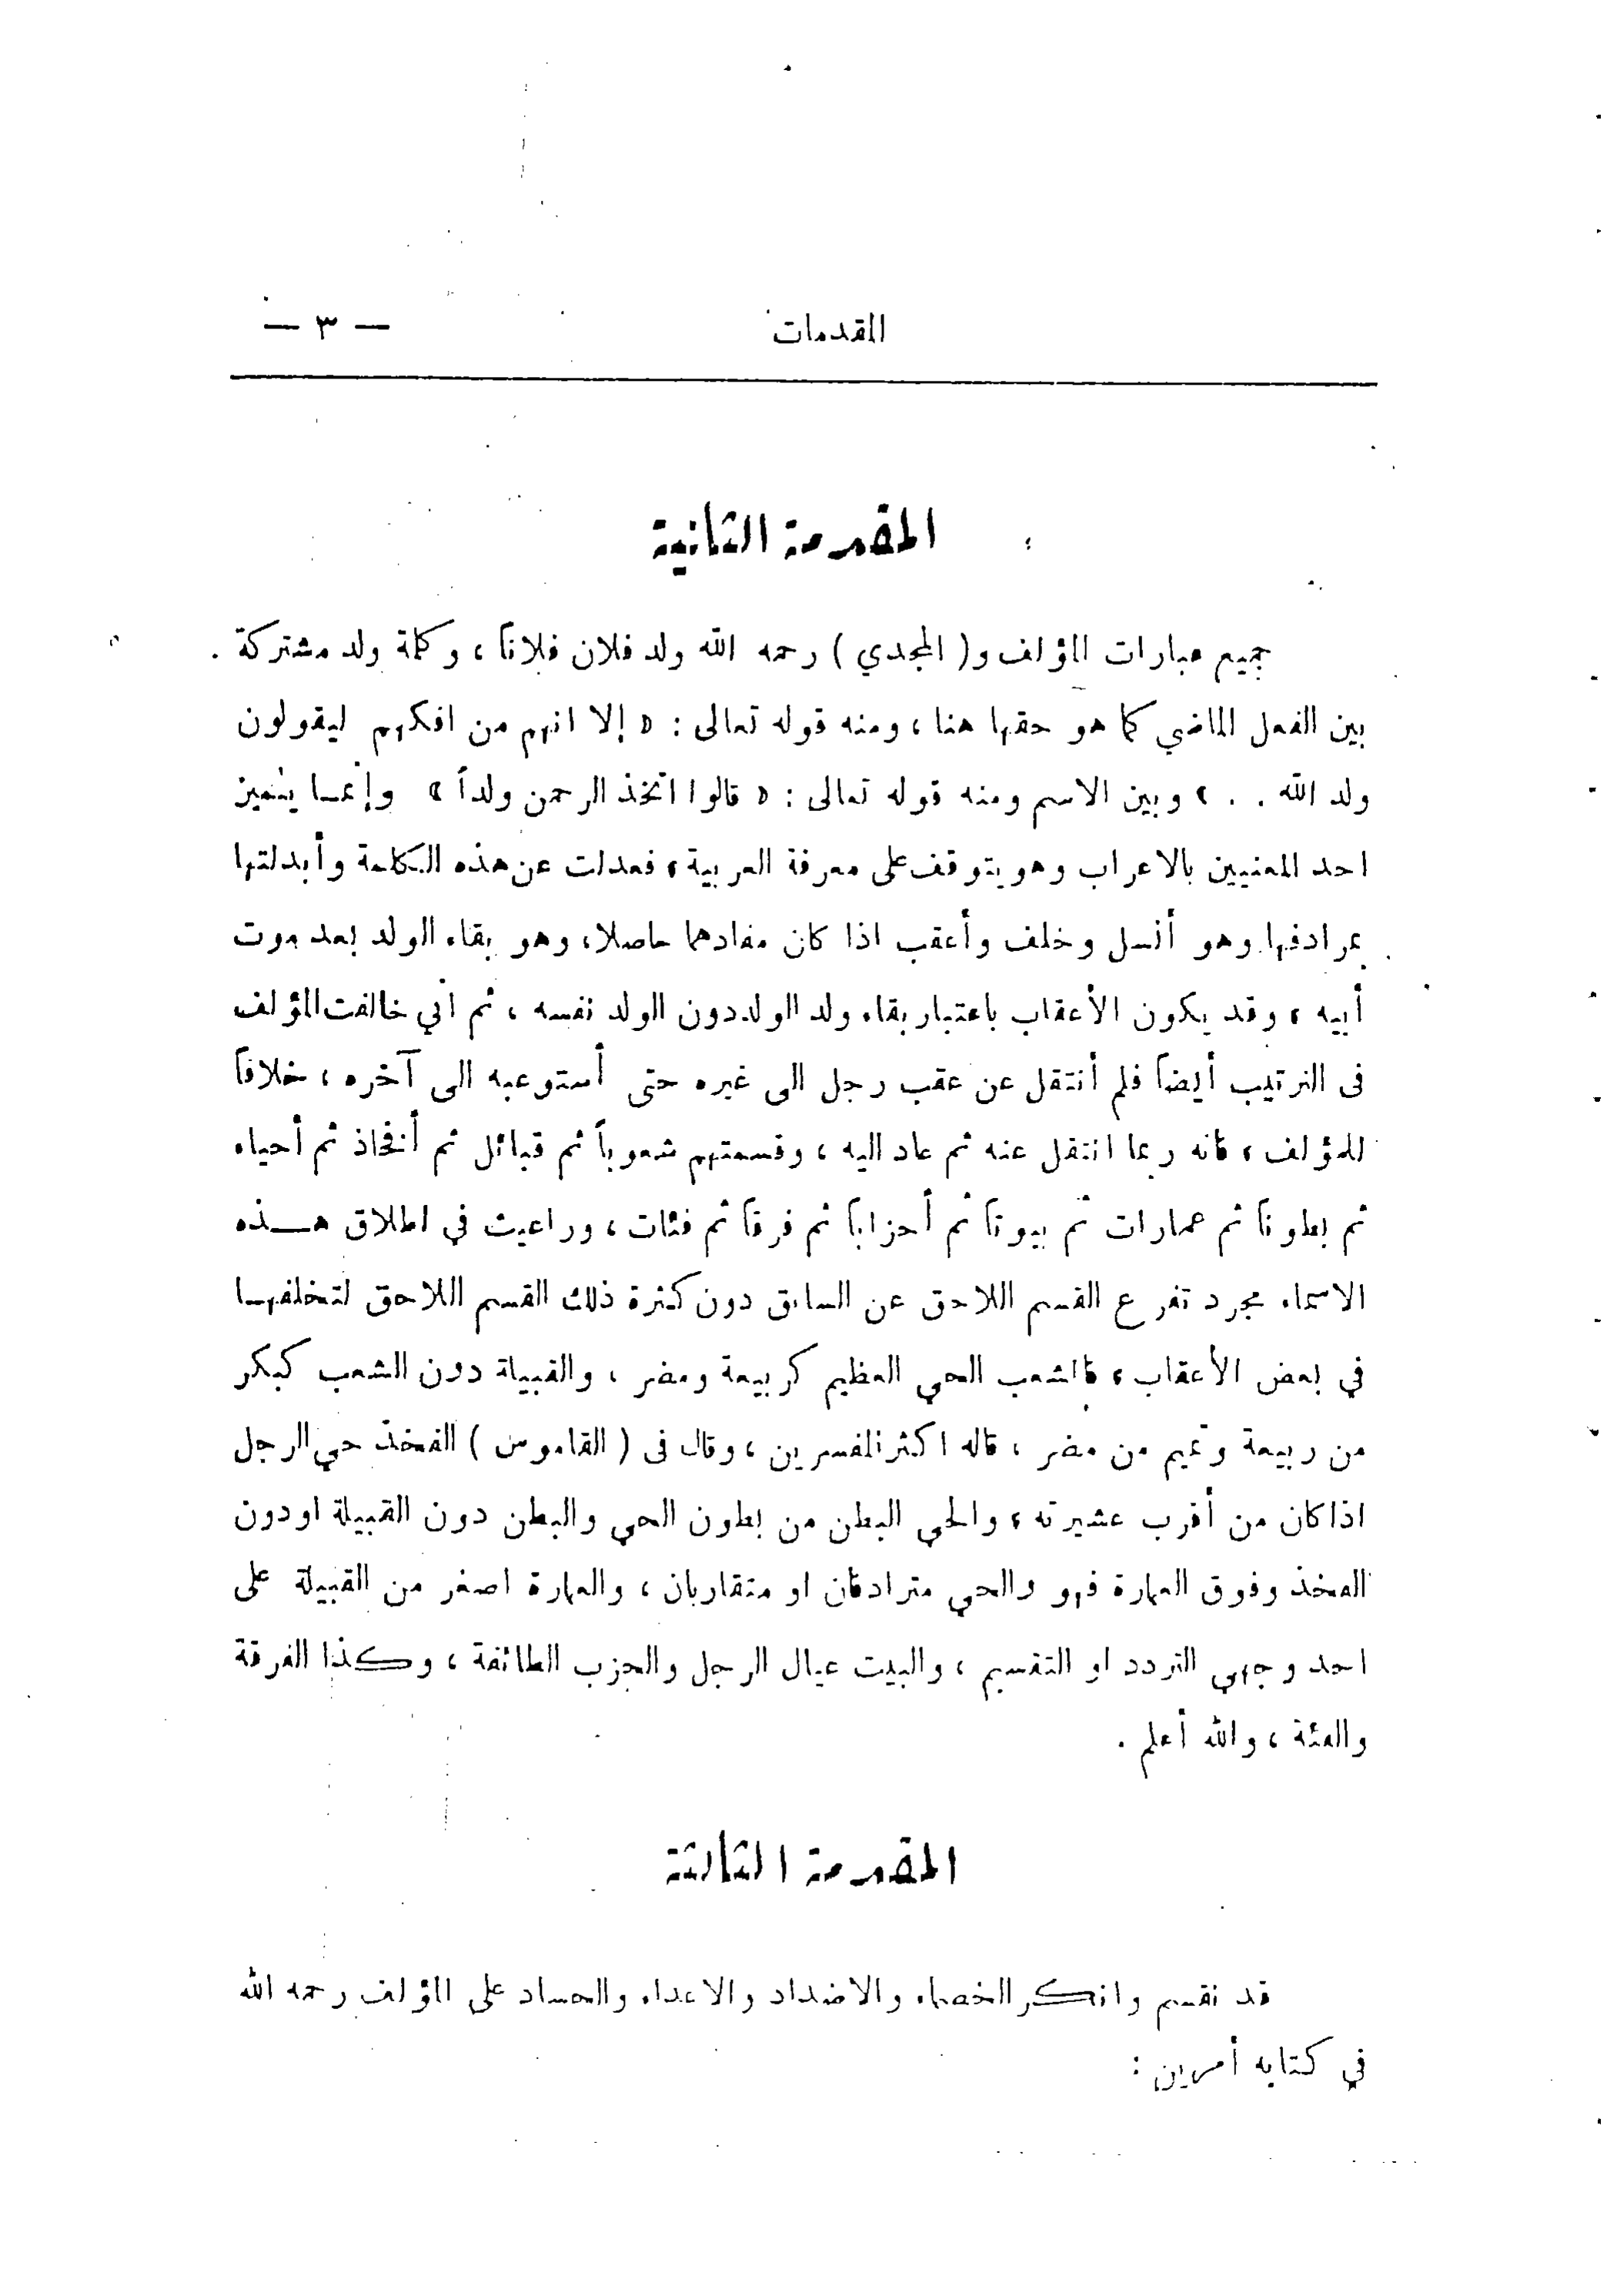 المقدمات — ٣ —
المقدمة الثانية
جميع عبارات المؤلف و( المجدي ) رحمه الله ولد فلان فلاناً ، وكلمة ولد مشتركة
بين الفعل الماضي كما هو حقها هنا ، ومنه قوله تعالى : « إلا انهم من افكهم ليقولون
ولد الله . . » وبين الاسم ومنه قوله تعالى : « قالوا اتخذ الرحمن ولداً » وإنمـا يتميز
احد المعنيين بالاعراب وهو يتوقف على معرفة العربية ، فعدلت عن هذه الكلمة وأبدلتها
بمرادفها وهو أنسل وخلف وأعقب اذا كان مفادهما حاصلا ، وهو بقاء الولد بعد موت
أبيه ، وقد يكون الأعقاب باعتبار بقاء ولد الولد دون الولد نفسه ، ثم اني خالفت المؤلف
في الترتيب أيضاً فلم أنتقل عن عقب رجل الى غيره حتى أستوعبه الى آخره ، خلافاً
للمؤلف ، فانه ربما انتقل عنه ثم عاد اليه ، وقسمتهم شعوباً ثم قبائل ثم أفخاذ ثم أحياء
ثم بطوناً ثم عمارات ثم بيوتاً ثم أحزاباً ثم فرقاً ثم فئات ، وراعيت في اطلاق هـــذه
الاسماء مجرد تفرع القسم اللاحق عن السابق دون كثرة ذلك القسم اللاحق لتخلفهـا
في بعض الأعقاب ، فالشعب الحي العظيم كربيعة ومضر ، والقبيلة دون الشعب كبكر
من ربيعة وتميم من مضر ، قاله اكثر المفسرين ، وقال في ( القاموس ) الفخذ حي الرجل
اذا كان من أقرب عشيرته ، والحي البطن من بطون الحي والبطن دون القبيلة او دون
الفخذ وفوق العمارة فهو والحي مترادفان او متقاربان ، والعمارة اصغر من القبيلة على
احد وجهي التردد او التقسيم ، والبيت عيال الرجل والحزب الطائفة ، وكذا الفرقة
والفئة ، والله أعلم .
المقدمة الثالثة
قد نقسم وانكر الخصماء والاضداد والاعداء والحساد على المؤلف رحمه الله
في كتابه أمرين :